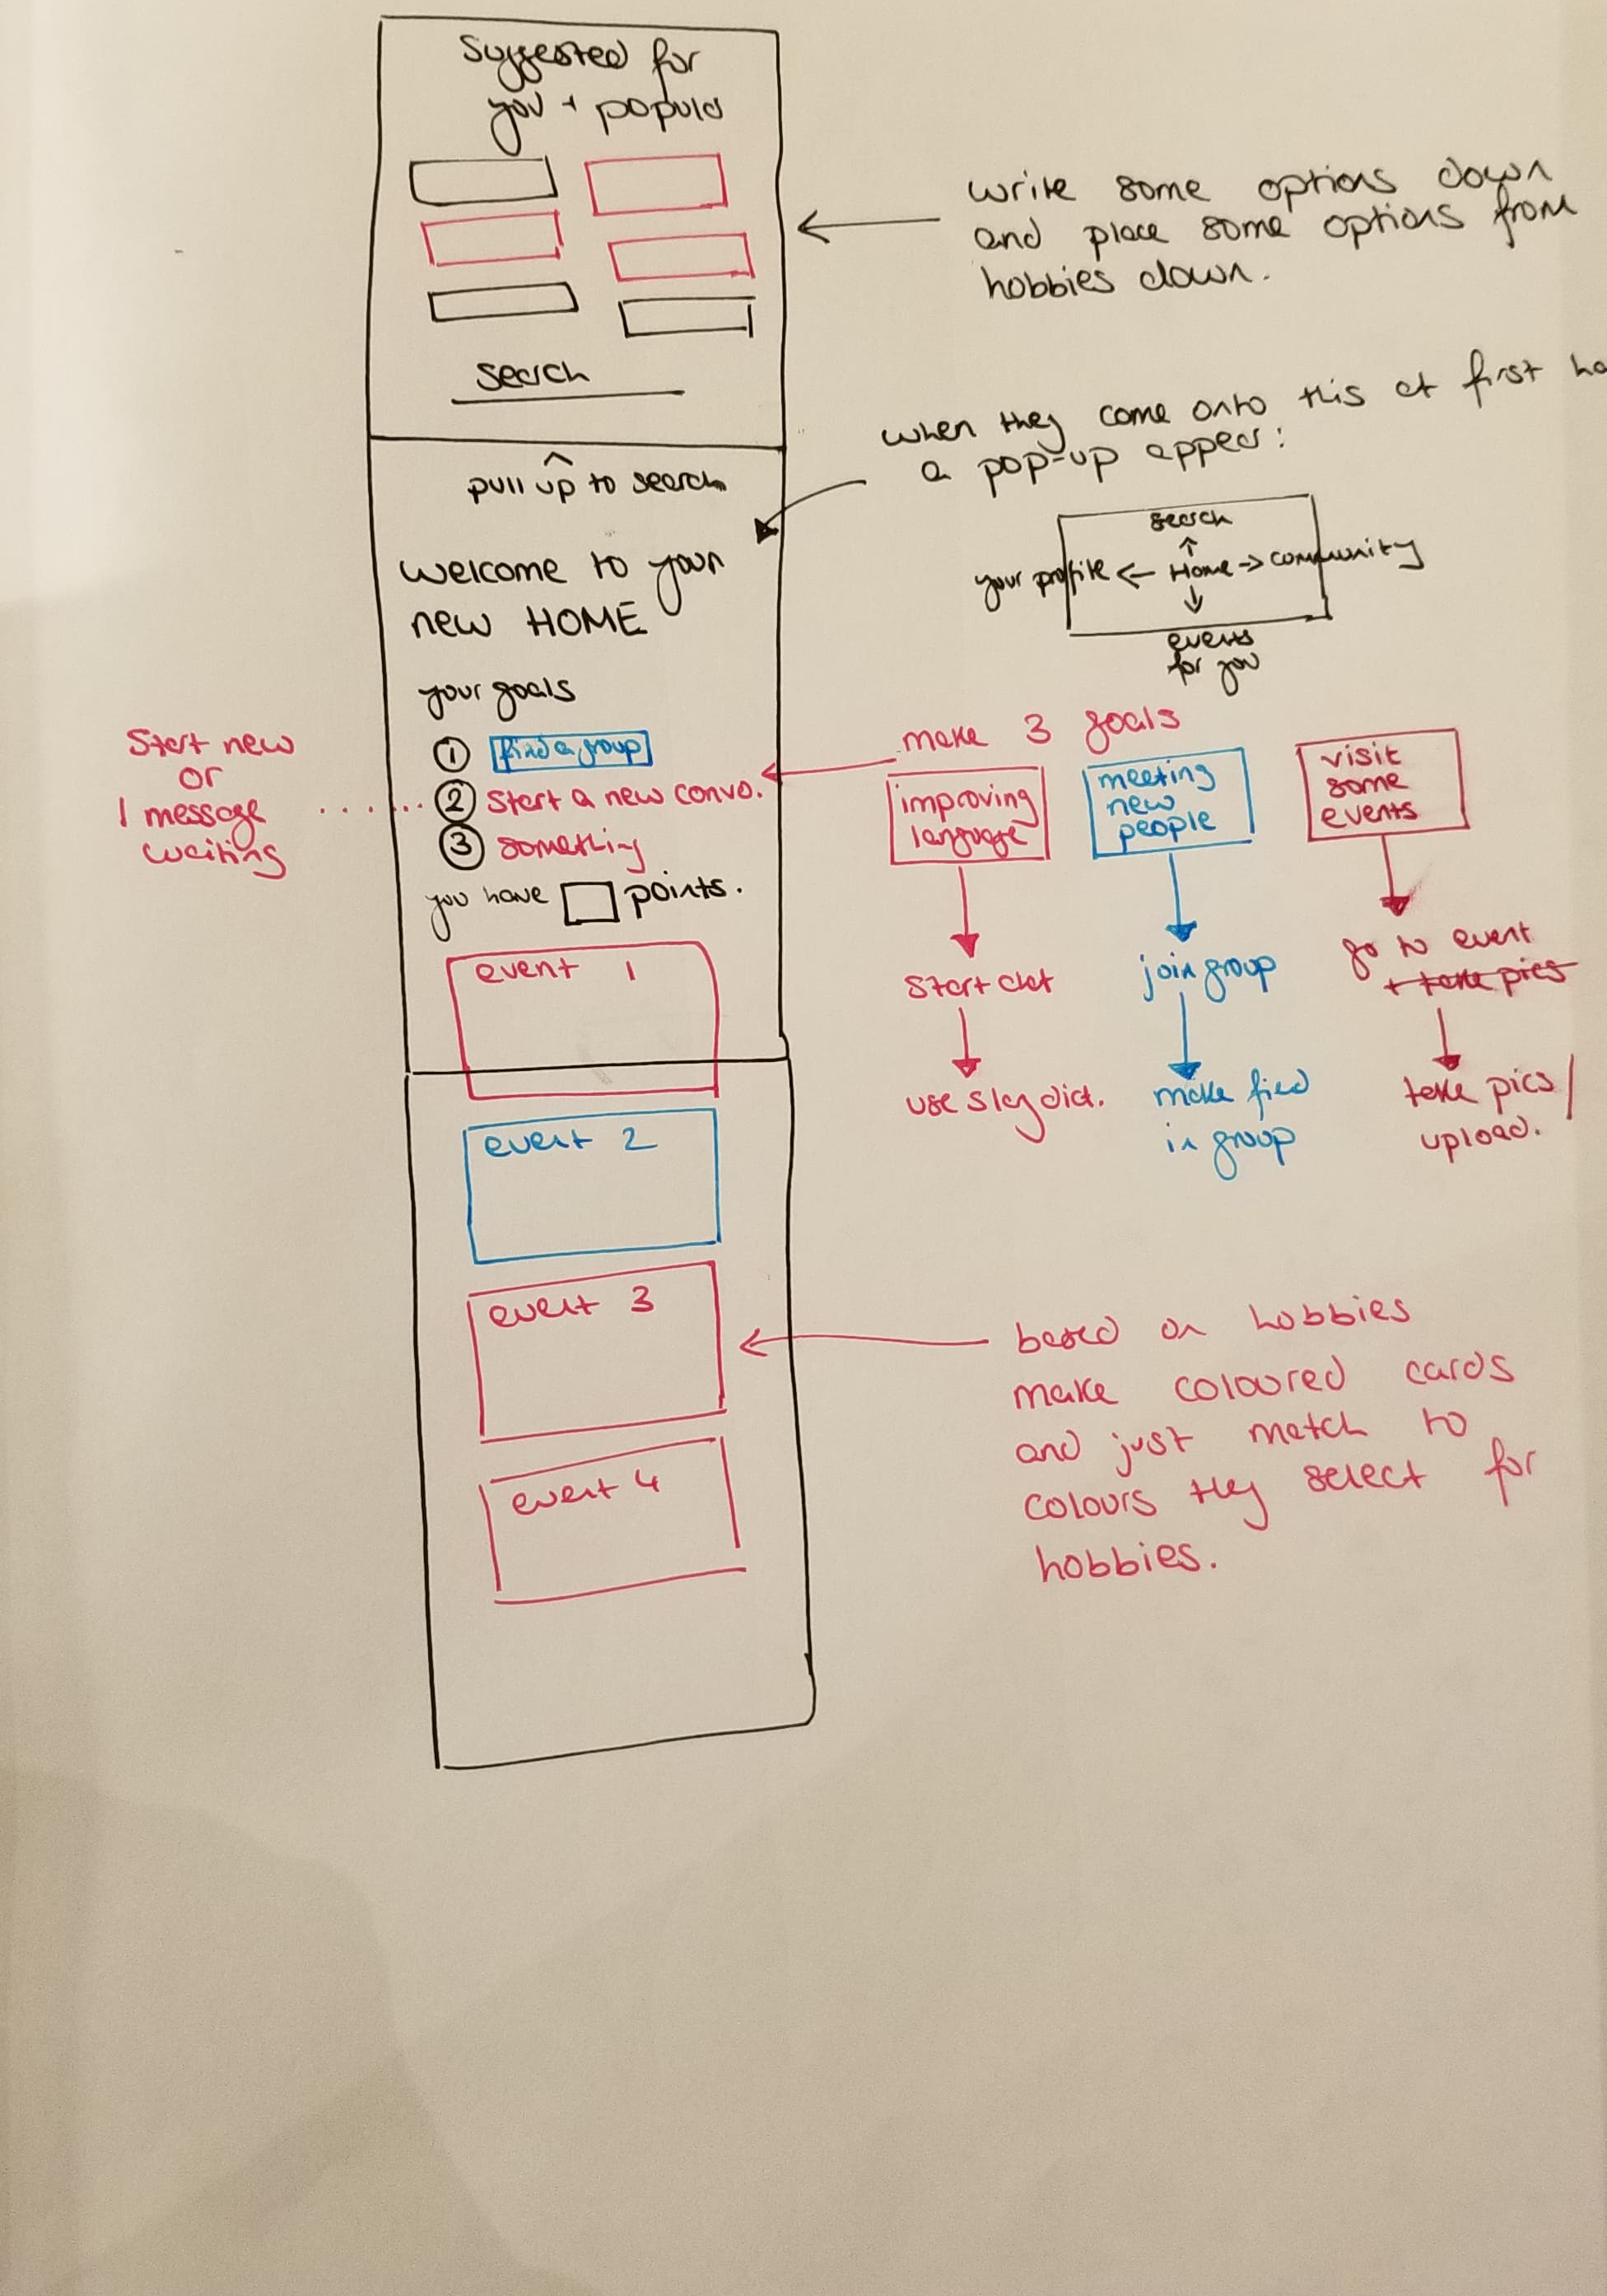 Suggested for
you + popular
search
pull up to search
welcome to your
new HOME
your goals
1 find a group
2 start a new convo.
3 something
you have points.
event 1
event 2
event 3
event 4
Start new
or
1 message
waiting
write some options down
and place some options from
hobbies down.
when they come onto this at first
a pop-up appear:
search
your profile ← Home → community
events
for you
make 3 goals
improving
language
start chat
use dict.
meeting
new
people
join group
make
in group
visit
some
events
go to event
+ take pics
take pics/
upload.
based on hobbies
make coloured cards
and just match to
colours they select for
hobbies.